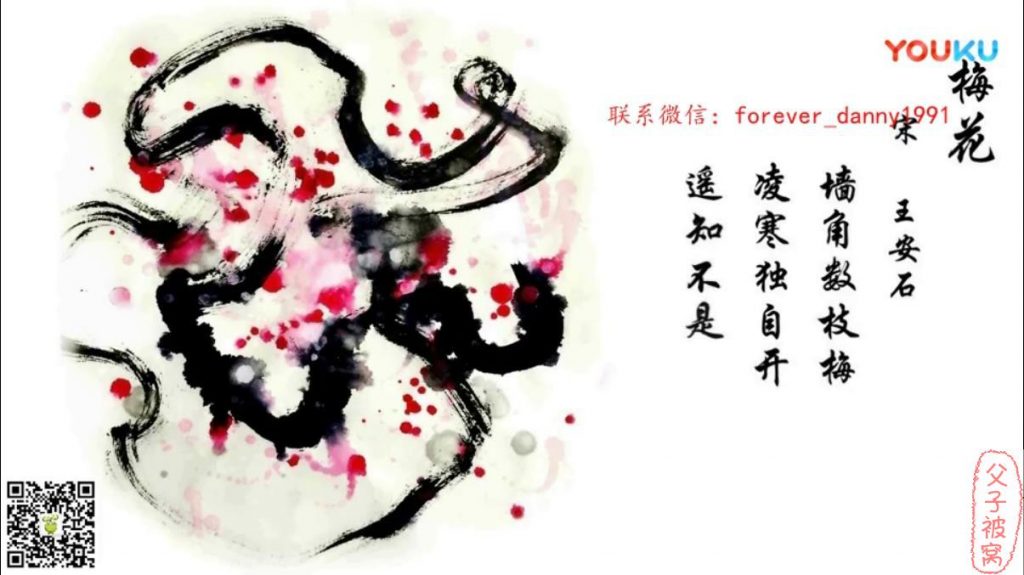 YOUKU
联系微信：forever_danny1991
梅花
宋 王安石
墙角数枝梅
凌寒独自开
遥知不是
父子被窝